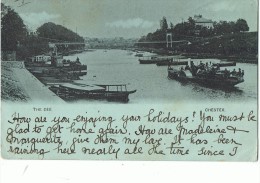 THE DEE.
CHESTER.
How are you enjoying your holidays! You must be
glad to get home again. How are Madeleine &
Marguerite, give them my love. It has been
raining here nearly all the time since I